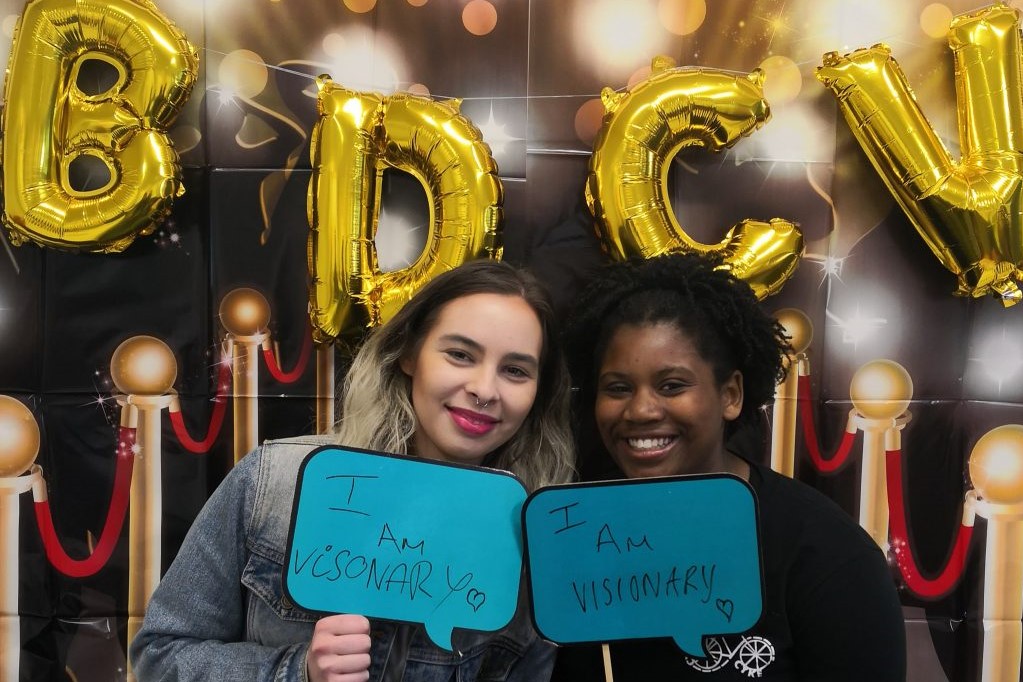 B D C V
I
AM
VISONARY
I
AM
VISIONARY